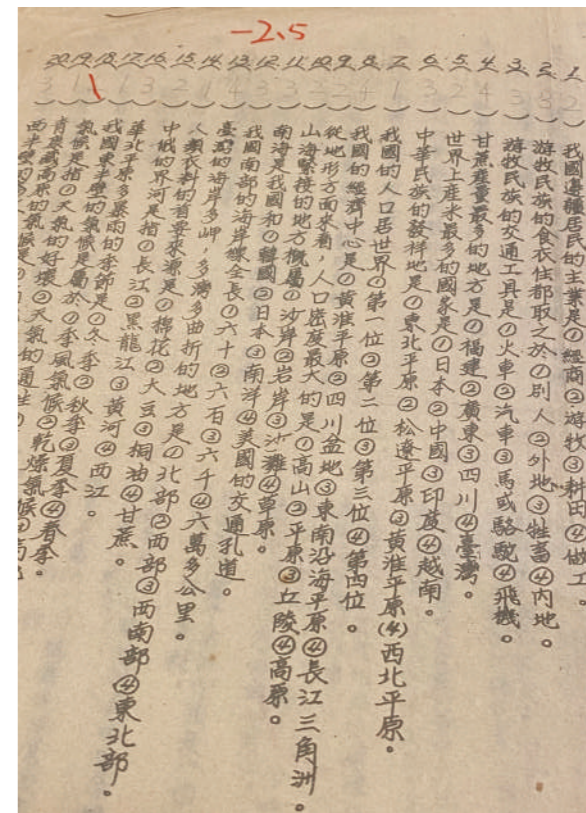 -2.5
1.(2)我國邊疆居民的主業是①經商②游牧③耕田④做工。
2.(3)游牧民族的食衣住都取之於①別人②外地③牲畜④內地。
3.(3)游牧民族的交通工具是①火車②汽車③馬或駱駝④飛機。
4.甘蔗產量最多的地方是①福建②廣東③四川④臺灣。
5.(2)世界上產米最多的國家是①日本②中國③印度④越南。
6.(3)中華民族的發祥地是①東北平原②松遼平原③黃淮平原(4)西北平原。
7.(1)我國的人口居世界①第一位②第二位③第三位④第四位。
8.我國的經濟中心是①黃淮平原②四川盆地③東南沿海平原④長江三角洲。
9.(2)從地形方面來看,人口密度最大的是①高山②平原③丘陵④高原。
10.(2)山海緊接的地方概屬①沙岸②岩岸③沙灘④草原。
11.(3)南海是我國和①韓國②日本③南洋④美國的交通孔道。
12.(3)我國南部的海岸線全長①六十②六百③六千④六萬多公里。
13.(4)臺灣的海岸多岬,多灣多曲折的地方是①北部②西部③西南部④東北部。
14.(1)人類衣料的首要來源是①棉花②大豆③桐油④甘蔗。
15.(2)中俄的界河是指①長江②黑龍江③黃河④西江。
16.(3)華北平原多暴雨的季節是①冬季②秋季③夏季④春季。
17.(1)我國東半壁的氣候是屬於①季風氣候②乾燥氣候④高
18.氣候是指①天氣的好壞②天氣的通
19.(1)青康藏高原的氣候是
20.(3)西半壁的